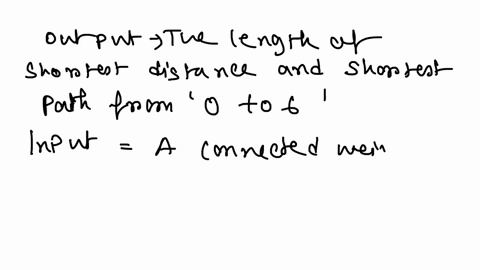 output → The length of
shortest distance and shortest
path from ' 0 to 6 '
Input = A connected wei